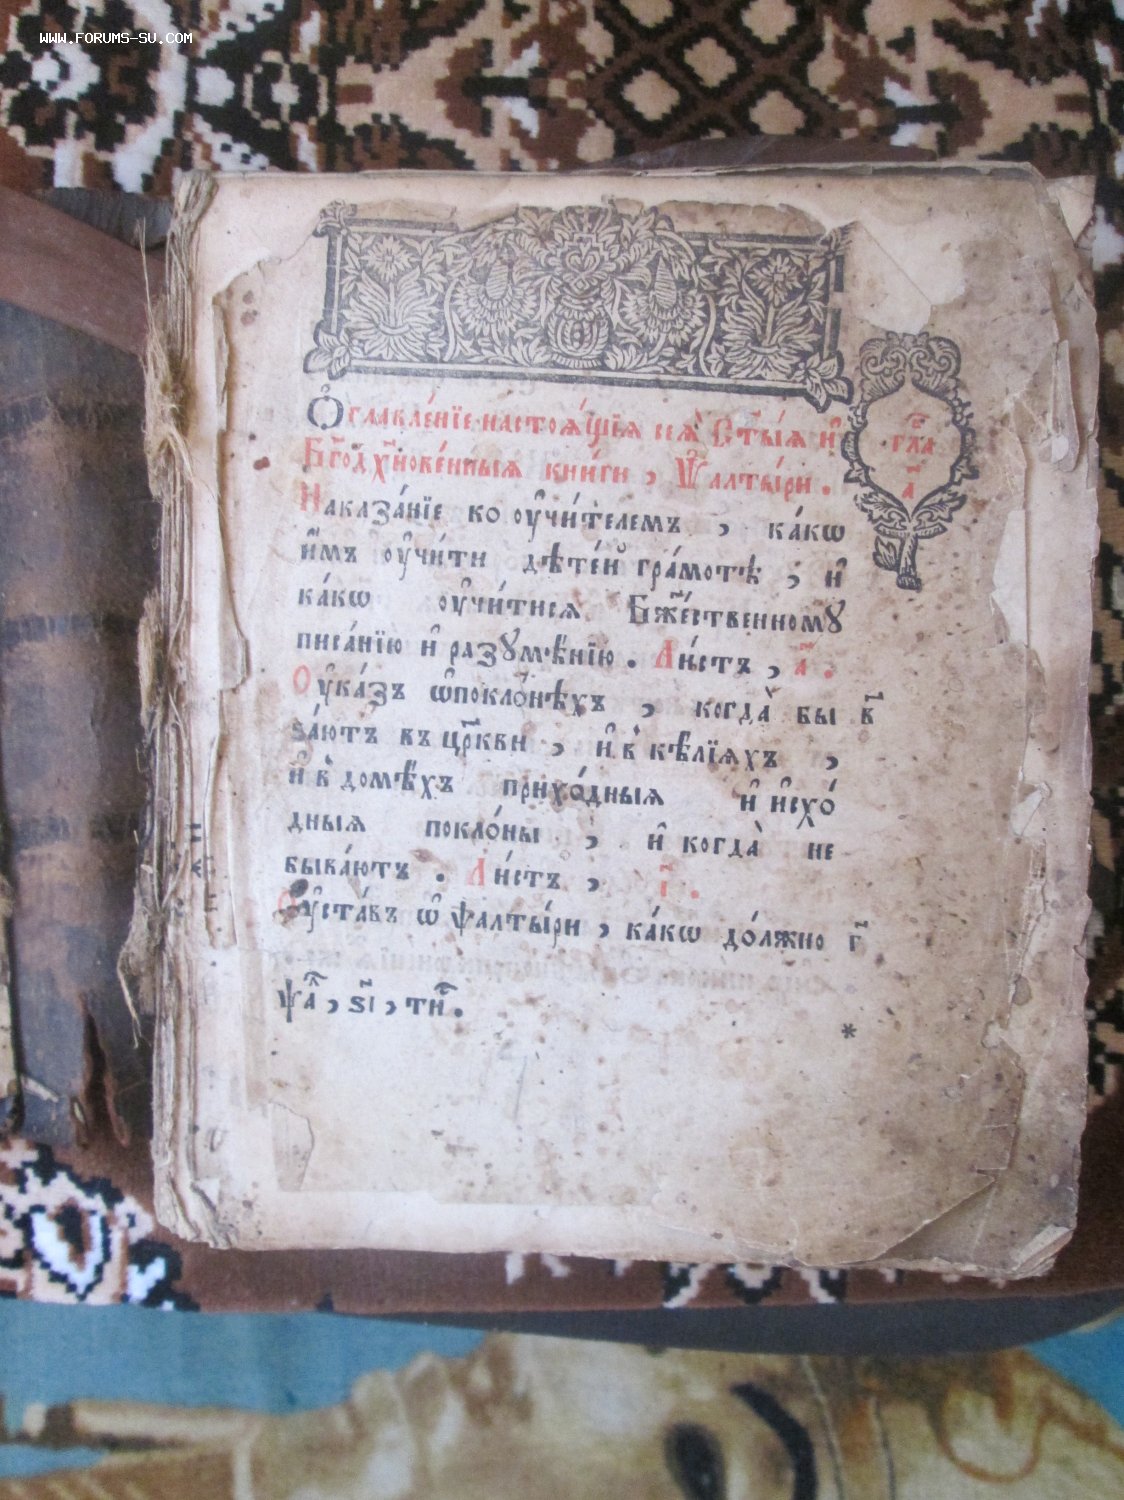 WWW.FORUMS-SU.COM
Ѻ҆главле́нїе настоѧ́щїѧ сеѧ̀ С҃ты́ѧ и҆
Бг҃одх҃нове́нныѧ кни́ги, Ѱалты́ри.
гла҃в
а҃
Наказа́нїе ко оу҆чи́телемъ, ка́кѡ
и҆́мъ оу҆чи́ти дѣте́й гра́мотѣ, и҆
ка́кѡ оу҆чи́тисѧ Бж҃е́ственномꙋ
писа́нїю и҆ разꙋмѣ́нїю. Ли́стъ, а҃.
Оу҆ка́зъ ѡ҆покло́нѣхъ, когда̀ бы в҃
ва́ютъ въ цр҃кви, и҆ в̾ кѣ́лїѧхъ,
и҆ в̾ домѣ́хъ прихо́дныѧ и҆ и҆схо́
дныѧ покло́ны, и҆ когда̀ не
быва́ютъ. Ли́стъ, і҃.
Оу҆ста́въ ѡ҆ ѱалты́ри, ка́кѡ до́лжно г҃
ѱа҃л, ѕ҃і, ти҃.
*